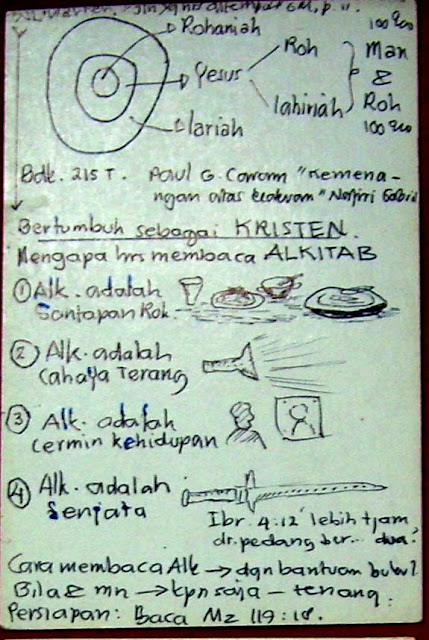 Rohaniah
Yesus
Roh
lahiriah
lariah
100%
Man
&
Roh
100%
Bdk. 215 T. Paul G. "Kemena-
ngan atas
Bertumbuh sebagai KRISTEN.
Mengapa hrs membaca ALKITAB
① Alk. adalah
Santapan Roh.
② Alk. adalah
Cahaya Terang
③ Alk. adalah
cermin kehidupan
④ Alk. adalah
Senjata
Ibr. 4:12 lebih tjam
dr. pedang ber... dua?
Cara membaca Alk → dgn bantuan buku2
Bila & mn → kpn saja - tenang.
Persiapan: Baca Mz 119:18.